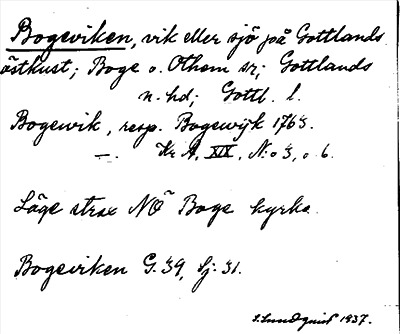 Bogeviken, vik eller sjö på Gottlands
östkust; Boge o. Othem sr; Gottlands
n. hd; Gottl. l.
Bogewik, resp. Bogewijk 1765.
—. Kr A, XIX, N:o 3, o 6.
Läge strax NÖ Boge kyrka.
Bogeviken G. 39, Sj: 31.
S. Lundquist 1937.